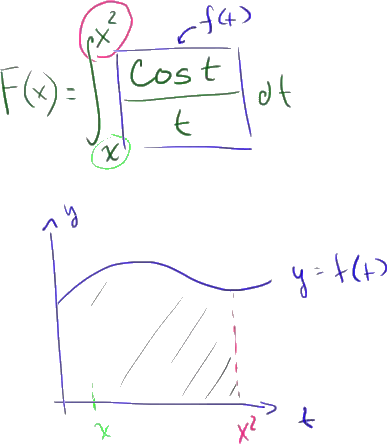 f(t)
F(x) = ∫ₓ^{x²} cos t / t dt
y
y = f(t)
x x² t